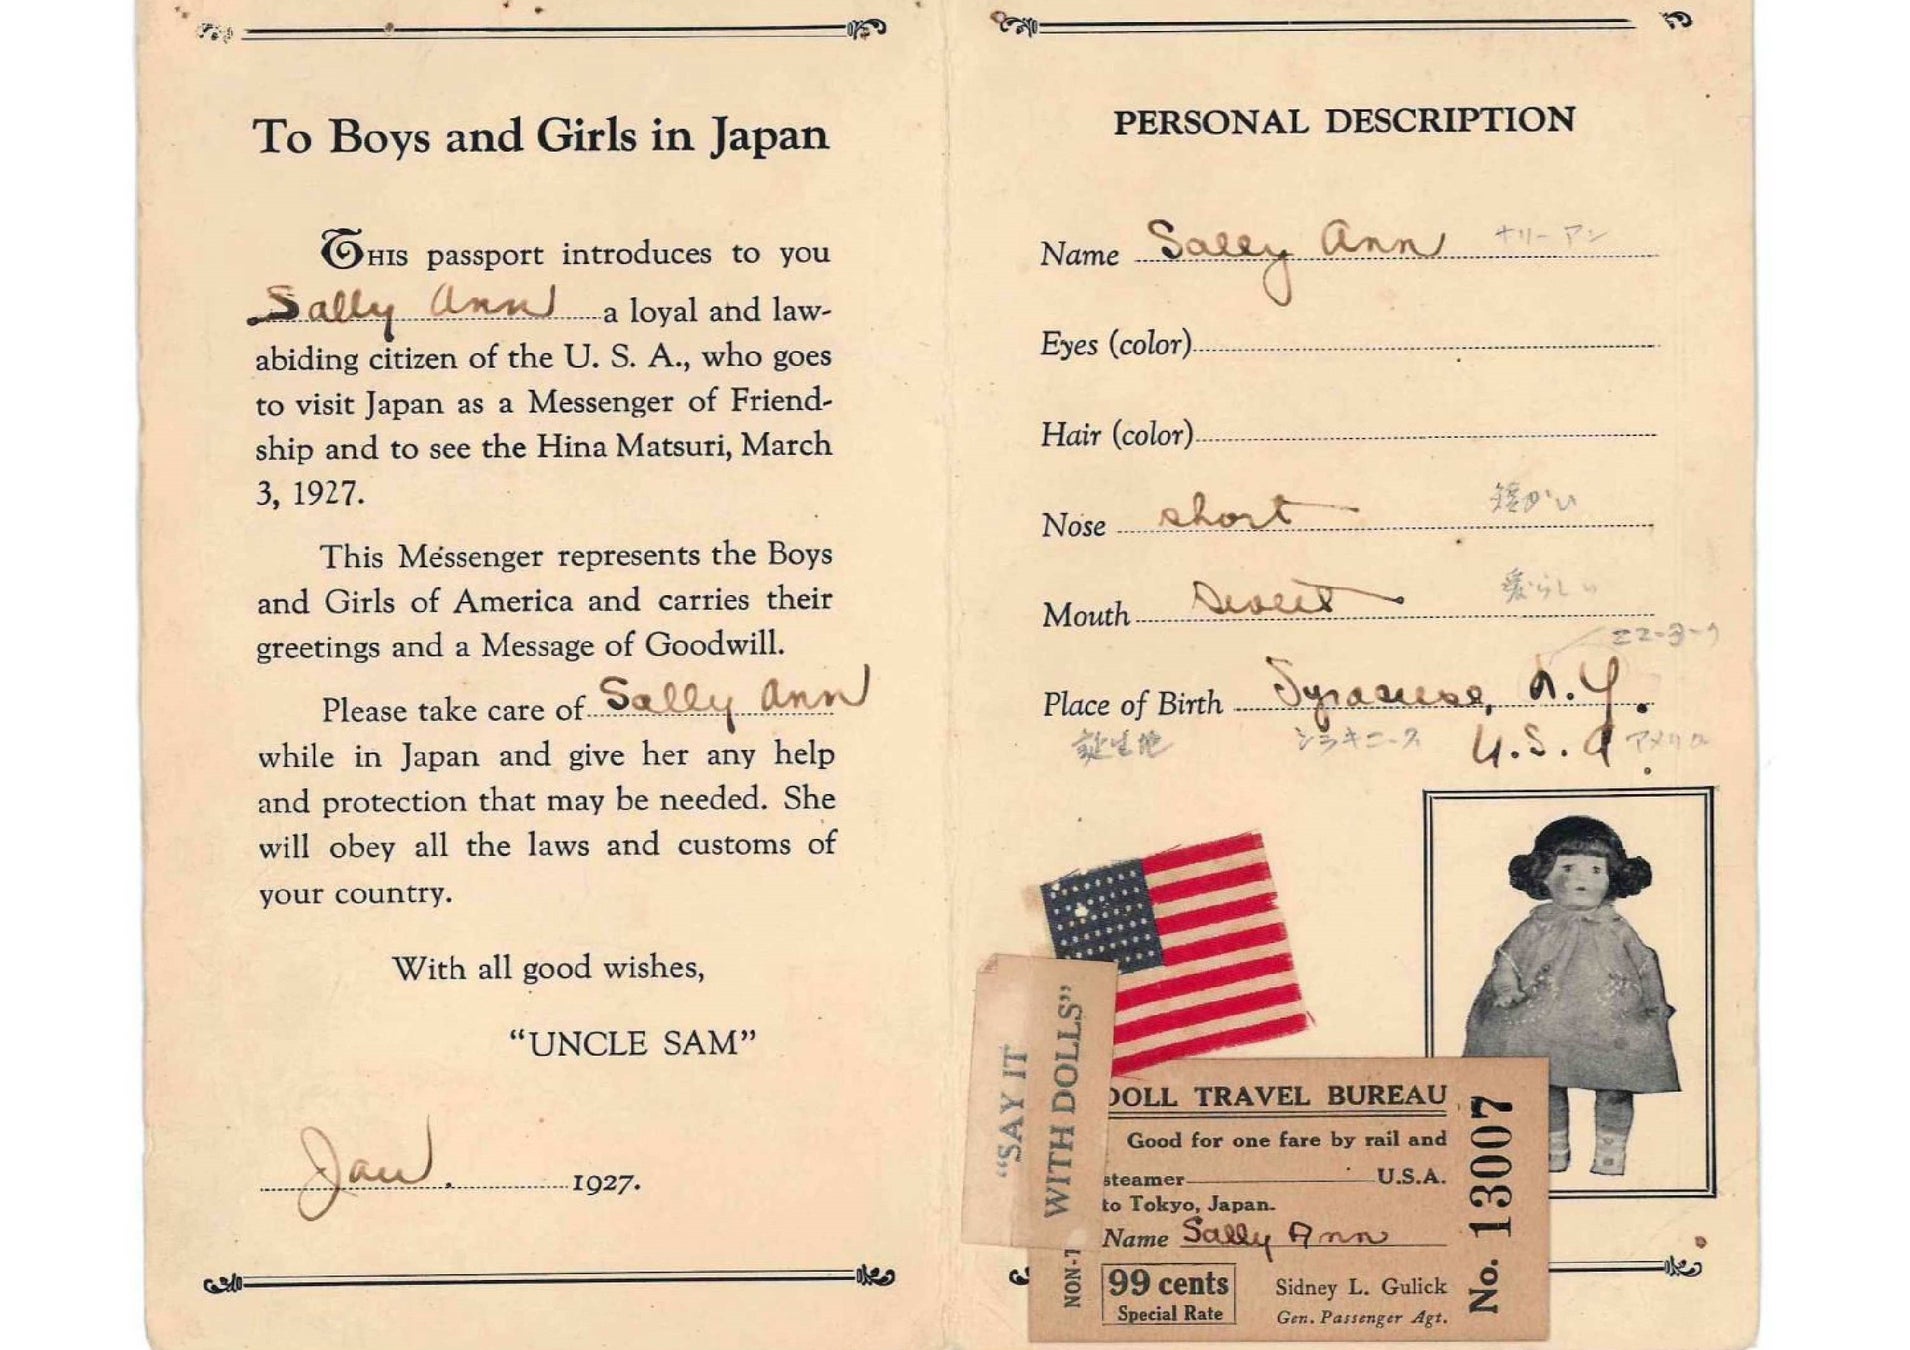 To Boys and Girls in Japan
THIS passport introduces to you
Sally Ann a loyal and law-
abiding citizen of the U. S. A., who goes
to visit Japan as a Messenger of Friend-
ship and to see the Hina Matsuri, March
3, 1927.
This Messenger represents the Boys
and Girls of America and carries their
greetings and a Message of Goodwill.
Please take care of Sally Ann
while in Japan and give her any help
and protection that may be needed. She
will obey all the laws and customs of
your country.
With all good wishes,
"UNCLE SAM"
Jan. 1927.
PERSONAL DESCRIPTION
Name Sally Ann サリーアン
Eyes (color)
Hair (color)
Nose short 短かい
Mouth sweet 愛らしい
Place of Birth Syracuse, N.Y.
誕生地 シラキユース U.S.A アメリカ
"SAY IT
WITH DOLLS"
DOLL TRAVEL BUREAU
Good for one fare by rail and
steamer U.S.A.
to Tokyo, Japan.
Name Sally Ann
99 cents
Special Rate
Sidney L. Gulick
Gen. Passenger Agt.
No. 13007
NON-T